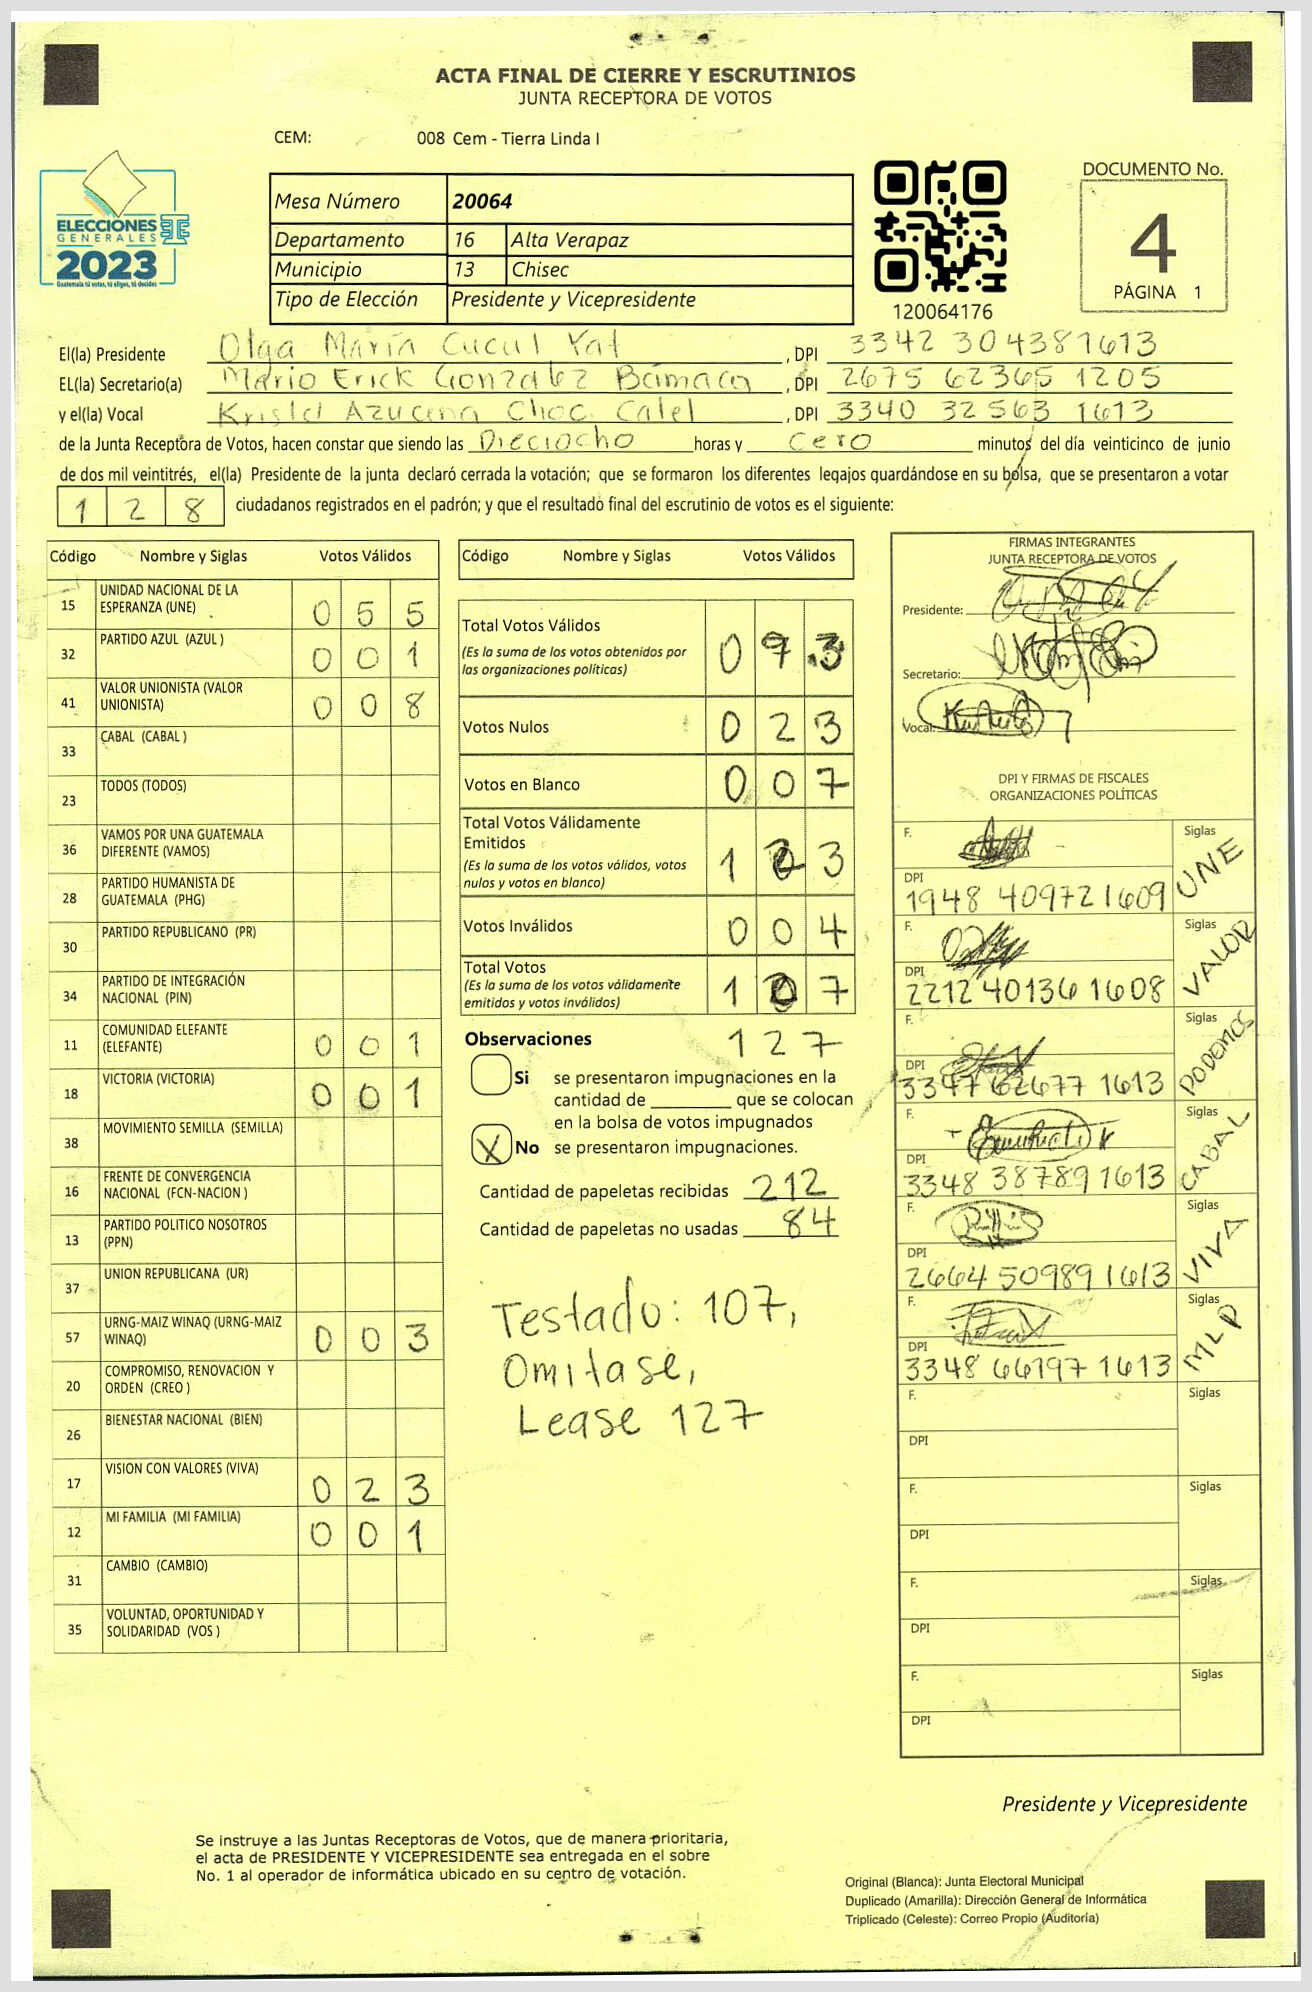 ACTA FINAL DE CIERRE Y ESCRUTINIOS
JUNTA RECEPTORA DE VOTOS
CEM: 008 Cem - Tierra Linda I
ELECCIONES
GENERALES
2023
Guatemala tú votas, tú eliges, tú decides
Mesa Número 20064
Departamento 16 Alta Verapaz
Municipio 13 Chisec
Tipo de Elección Presidente y Vicepresidente
120064176
DOCUMENTO No.
4
PÁGINA 1
El(la) Presidente Olga María Cucul Yat, DPI 3342 304381613
EL(la) Secretario(a) Mario Erick Gonzalez Bámaca, DPI 2675 62365 1205
y el(la) Vocal Kristel Azucena Choc Catel, DPI 3340 32563 1613
de la Junta Receptora de Votos, hacen constar que siendo las Dieciocho horas y cero minutos del día veinticinco de junio
de dos mil veintitrés, el(la) Presidente de la junta declaró cerrada la votación; que se formaron los diferentes legajos guardándose en su bolsa, que se presentaron a votar
128 ciudadanos registrados en el padrón; y que el resultado final del escrutinio de votos es el siguiente:
Código Nombre y Siglas Votos Válidos
15 UNIDAD NACIONAL DE LA
ESPERANZA (UNE) 055
32 PARTIDO AZUL (AZUL ) 001
41 VALOR UNIONISTA (VALOR
UNIONISTA) 008
33 CABAL (CABAL )
23 TODOS (TODOS)
36 VAMOS POR UNA GUATEMALA
DIFERENTE (VAMOS)
28 PARTIDO HUMANISTA DE
GUATEMALA (PHG)
30 PARTIDO REPUBLICANO (PR)
34 PARTIDO DE INTEGRACIÓN
NACIONAL (PIN)
11 COMUNIDAD ELEFANTE
(ELEFANTE) 001
18 VICTORIA (VICTORIA) 001
38 MOVIMIENTO SEMILLA (SEMILLA)
16 FRENTE DE CONVERGENCIA
NACIONAL (FCN-NACION )
13 PARTIDO POLITICO NOSOTROS
(PPN)
37 UNION REPUBLICANA (UR)
57 URNG-MAIZ WINAQ (URNG-MAIZ
WINAQ) 003
20 COMPROMISO, RENOVACION Y
ORDEN (CREO )
26 BIENESTAR NACIONAL (BIEN)
17 VISION CON VALORES (VIVA) 023
12 MI FAMILIA (MI FAMILIA) 001
31 CAMBIO (CAMBIO)
35 VOLUNTAD, OPORTUNIDAD Y
SOLIDARIDAD (VOS )
Código Nombre y Siglas Votos Válidos
Total Votos Válidos 093
(Es la suma de los votos obtenidos por
las organizaciones políticas)
Votos Nulos 023
Votos en Blanco 007
Total Votos Válidamente
Emitidos 123
(Es la suma de los votos válidos, votos
nulos y votos en blanco)
Votos Inválidos 004
Total Votos
(Es la suma de los votos válidamente
emitidos y votos inválidos)
Observaciones 127
Si se presentaron impugnaciones en la
cantidad de ________ que se colocan
en la bolsa de votos impugnados
X No se presentaron impugnaciones.
Cantidad de papeletas recibidas 212
Cantidad de papeletas no usadas 84
Testado: 107,
Omitase,
Lease 127
FIRMAS INTEGRANTES
JUNTA RECEPTORA DE VOTOS
Presidente:
Secretario:
Vocal:
DPI Y FIRMAS DE FISCALES
ORGANIZACIONES POLÍTICAS
F. Siglas UNE
DPI
1948 40972 1609
F. Siglas VALOR
DPI
2212 40136 1608
F. Siglas PODEMOS
DPI
3347 62677 1613
F. Siglas CABAL
DPI
3348 38789 1613
F. Siglas VIVA
DPI
2664 50989 1613
F. Siglas MLP
DPI
3348 66197 1613
F. Siglas
DPI
F. Siglas
DPI
F. Siglas
DPI
F. Siglas
DPI
Presidente y Vicepresidente
Se instruye a las Juntas Receptoras de Votos, que de manera prioritaria,
el acta de PRESIDENTE Y VICEPRESIDENTE sea entregada en el sobre
No. 1 al operador de informática ubicado en su centro de votación.
Original (Blanca): Junta Electoral Municipal
Duplicado (Amarilla): Dirección General de Informática
Triplicado (Celeste): Correo Propio (Auditoría)